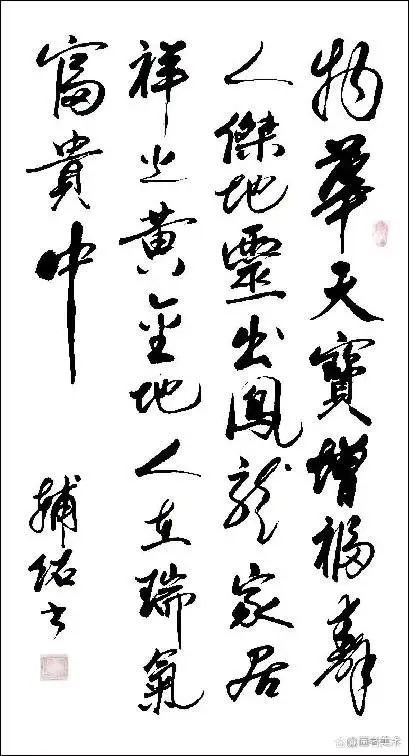 物華天寶增福壽
人傑地靈出鳳龍家居
祥光黃金地人在瑞氣
富貴中